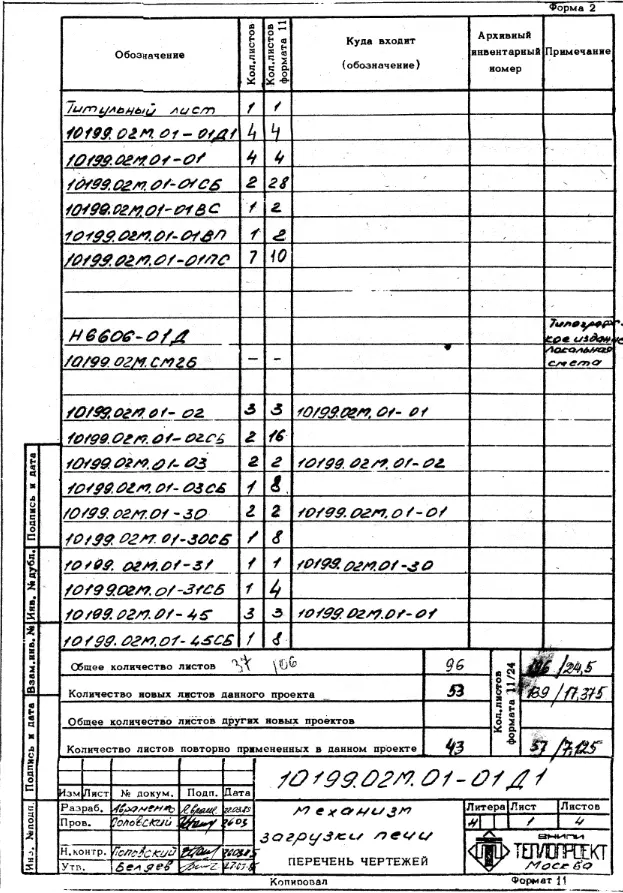 Форма 2
Обозначение
Кол.листов
Кол.листов формата 11
Куда входит
(обозначение)
Архивный
инвентарный
номер
Примечание
Титульный лист 1 1
10199.02М.01-01Д1 4 4
10199.02М.01-01 4 4
10199.02М.01-01СБ 2 28
10199.02М.01-01ВС 1 2
10199.02М.01-01ВП 1 2
10199.02М.01-01ПС 7 10
Н6606-01Д
Типограф-
кое издание
10199.02М.СМ2Б - - локальная
смета
10199.02М.01-02 3 3 10199.02М.01-01
10199.02М.01-02СБ 2 16
10199.02М.01-03 2 2 10199.02М.01-02
10199.02М.01-03СБ 1 8
10199.02М.01-30 2 2 10199.02М.01-01
10199.02М.01-30СБ 1 8
10199.02М.01-31 1 1 10199.02М.01-30
10199.02М.01-31СБ 1 4
10199.02М.01-45 3 3 10199.02М.01-01
10199.02М.01-45СБ 1 8
Общее количество листов 37 106 96 /24,5
Количество новых листов данного проекта 53 139/17,375
Общее количество листов других новых проектов
Количество листов повторно примененных в данном проекте 43 57/7,125
Кол.листов
формата 11/24
Подпись и дата
Инв. № дубл.
Взам.инв. №
Подпись и дата
Инв. № подл.
10199.02М.01-01Д1
Изм Лист № докум. Подп. Дата
Разраб.
Пров. Соповский
Н.контр. Соповский
Утв. Беляев
механизм
загрузки печи
ПЕРЕЧЕНЬ ЧЕРТЕЖЕЙ
Литера Лист Листов
И 1 4
ВНИПИ
ТЕПЛОПРОЕКТ
Москва
Копировал Формат 11